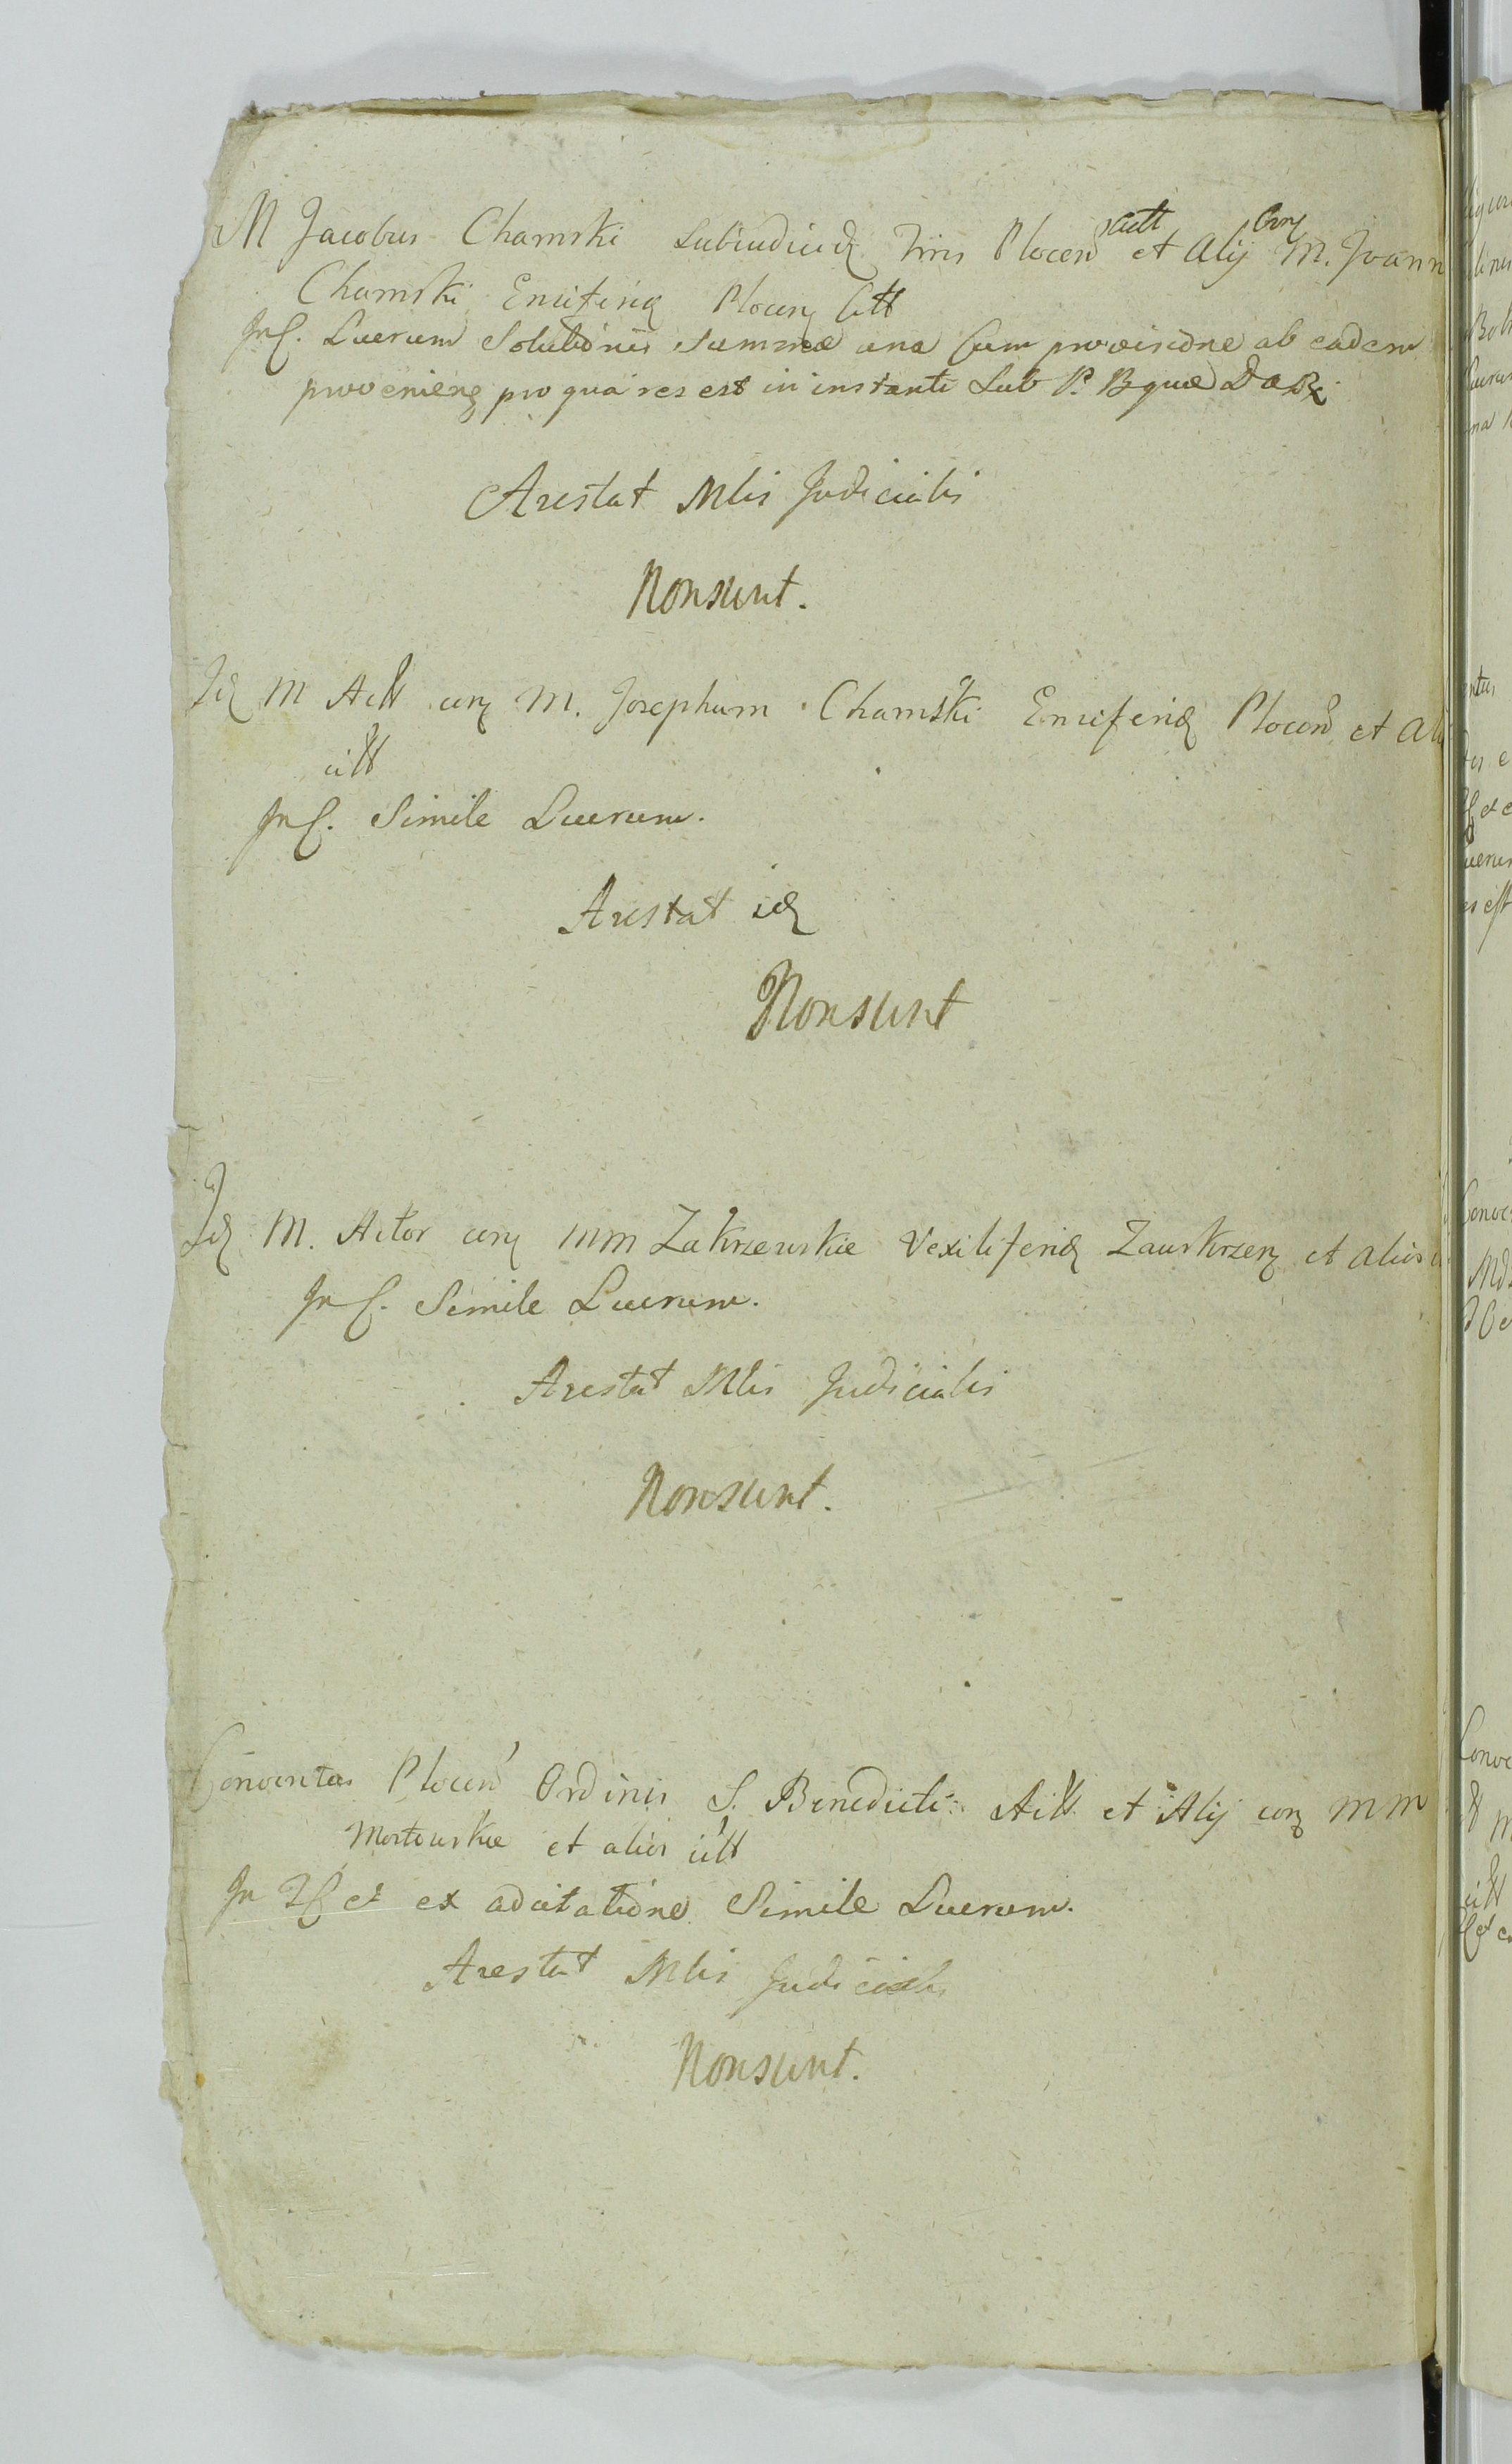 M Jacobus Chamski Subiudicq Trris Plocen Actt et Alij Corq M. Joann
Chamski Ensiferiq Plocenq Citt
In f. Lucrum Solutionis Summæ una Cum provisione ab eadem
provenienq pro qua res est in instanti Sub P. B quæ D a Rx
Arestat Mlis Judicialis
Nonsunt.
Idq M Actt corq M. Josephum Chamski Ensiferiq Plocen et Ali
citt
In f. Simile Lucrum.
Arestat idq
Nonsunt
Idq M. Actor corq MM Zakrzewskie Vexiliferiq Zawskrzenq et alios
In f. Simile Lucrum.
Arestat Mlis Judicialis
Nonsunt.
Conventus Plocen Ordinis S. Benedicti Actt et Alij corq MM
Mostowskie et alios citt
In et ex adcitatione Simile Lucrum.
Arestat Mlis Judicialis
Nonsunt.